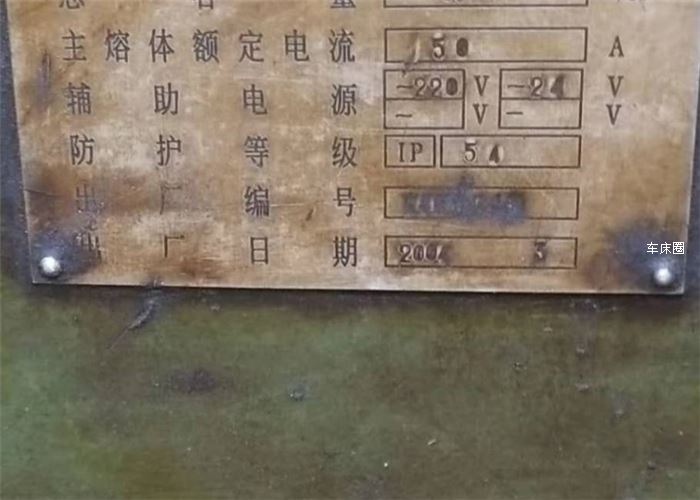 主熔体额定电流 50 A
辅助电源 ~220 V ~24 V
~ V ~ V
防护等级 IP 54
出厂编号
出厂日期 200 3
车床圈